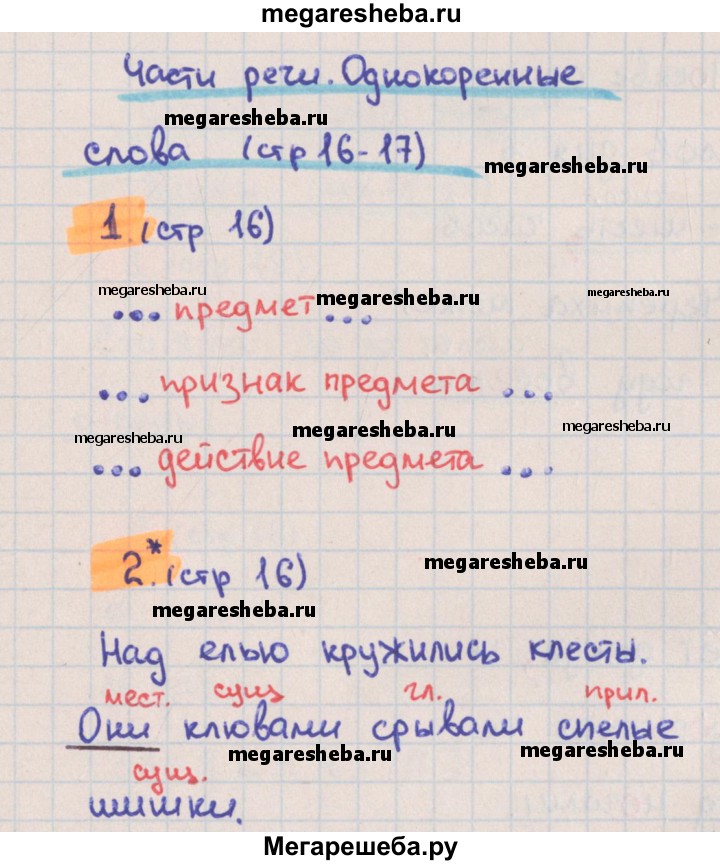 megaresheba.ru
Части речи. Однокоренные
megaresheba.ru
слова (стр 16-17)
megaresheba.ru
1. (стр 16)
megaresheba.ru
megaresheba.ru
megaresheba.ru
... предмет ...
... признак предмета ...
megaresheba.ru
megaresheba.ru
megaresheba.ru
... действие предмета ...
2.* (стр 16)
megaresheba.ru
megaresheba.ru
Над елью кружились клесты.
мест. сущ гл. прил.
Они клювами срывали спелые
megaresheba.ru
megaresheba.ru
сущ.
шишки.
Мегарешеба.ру